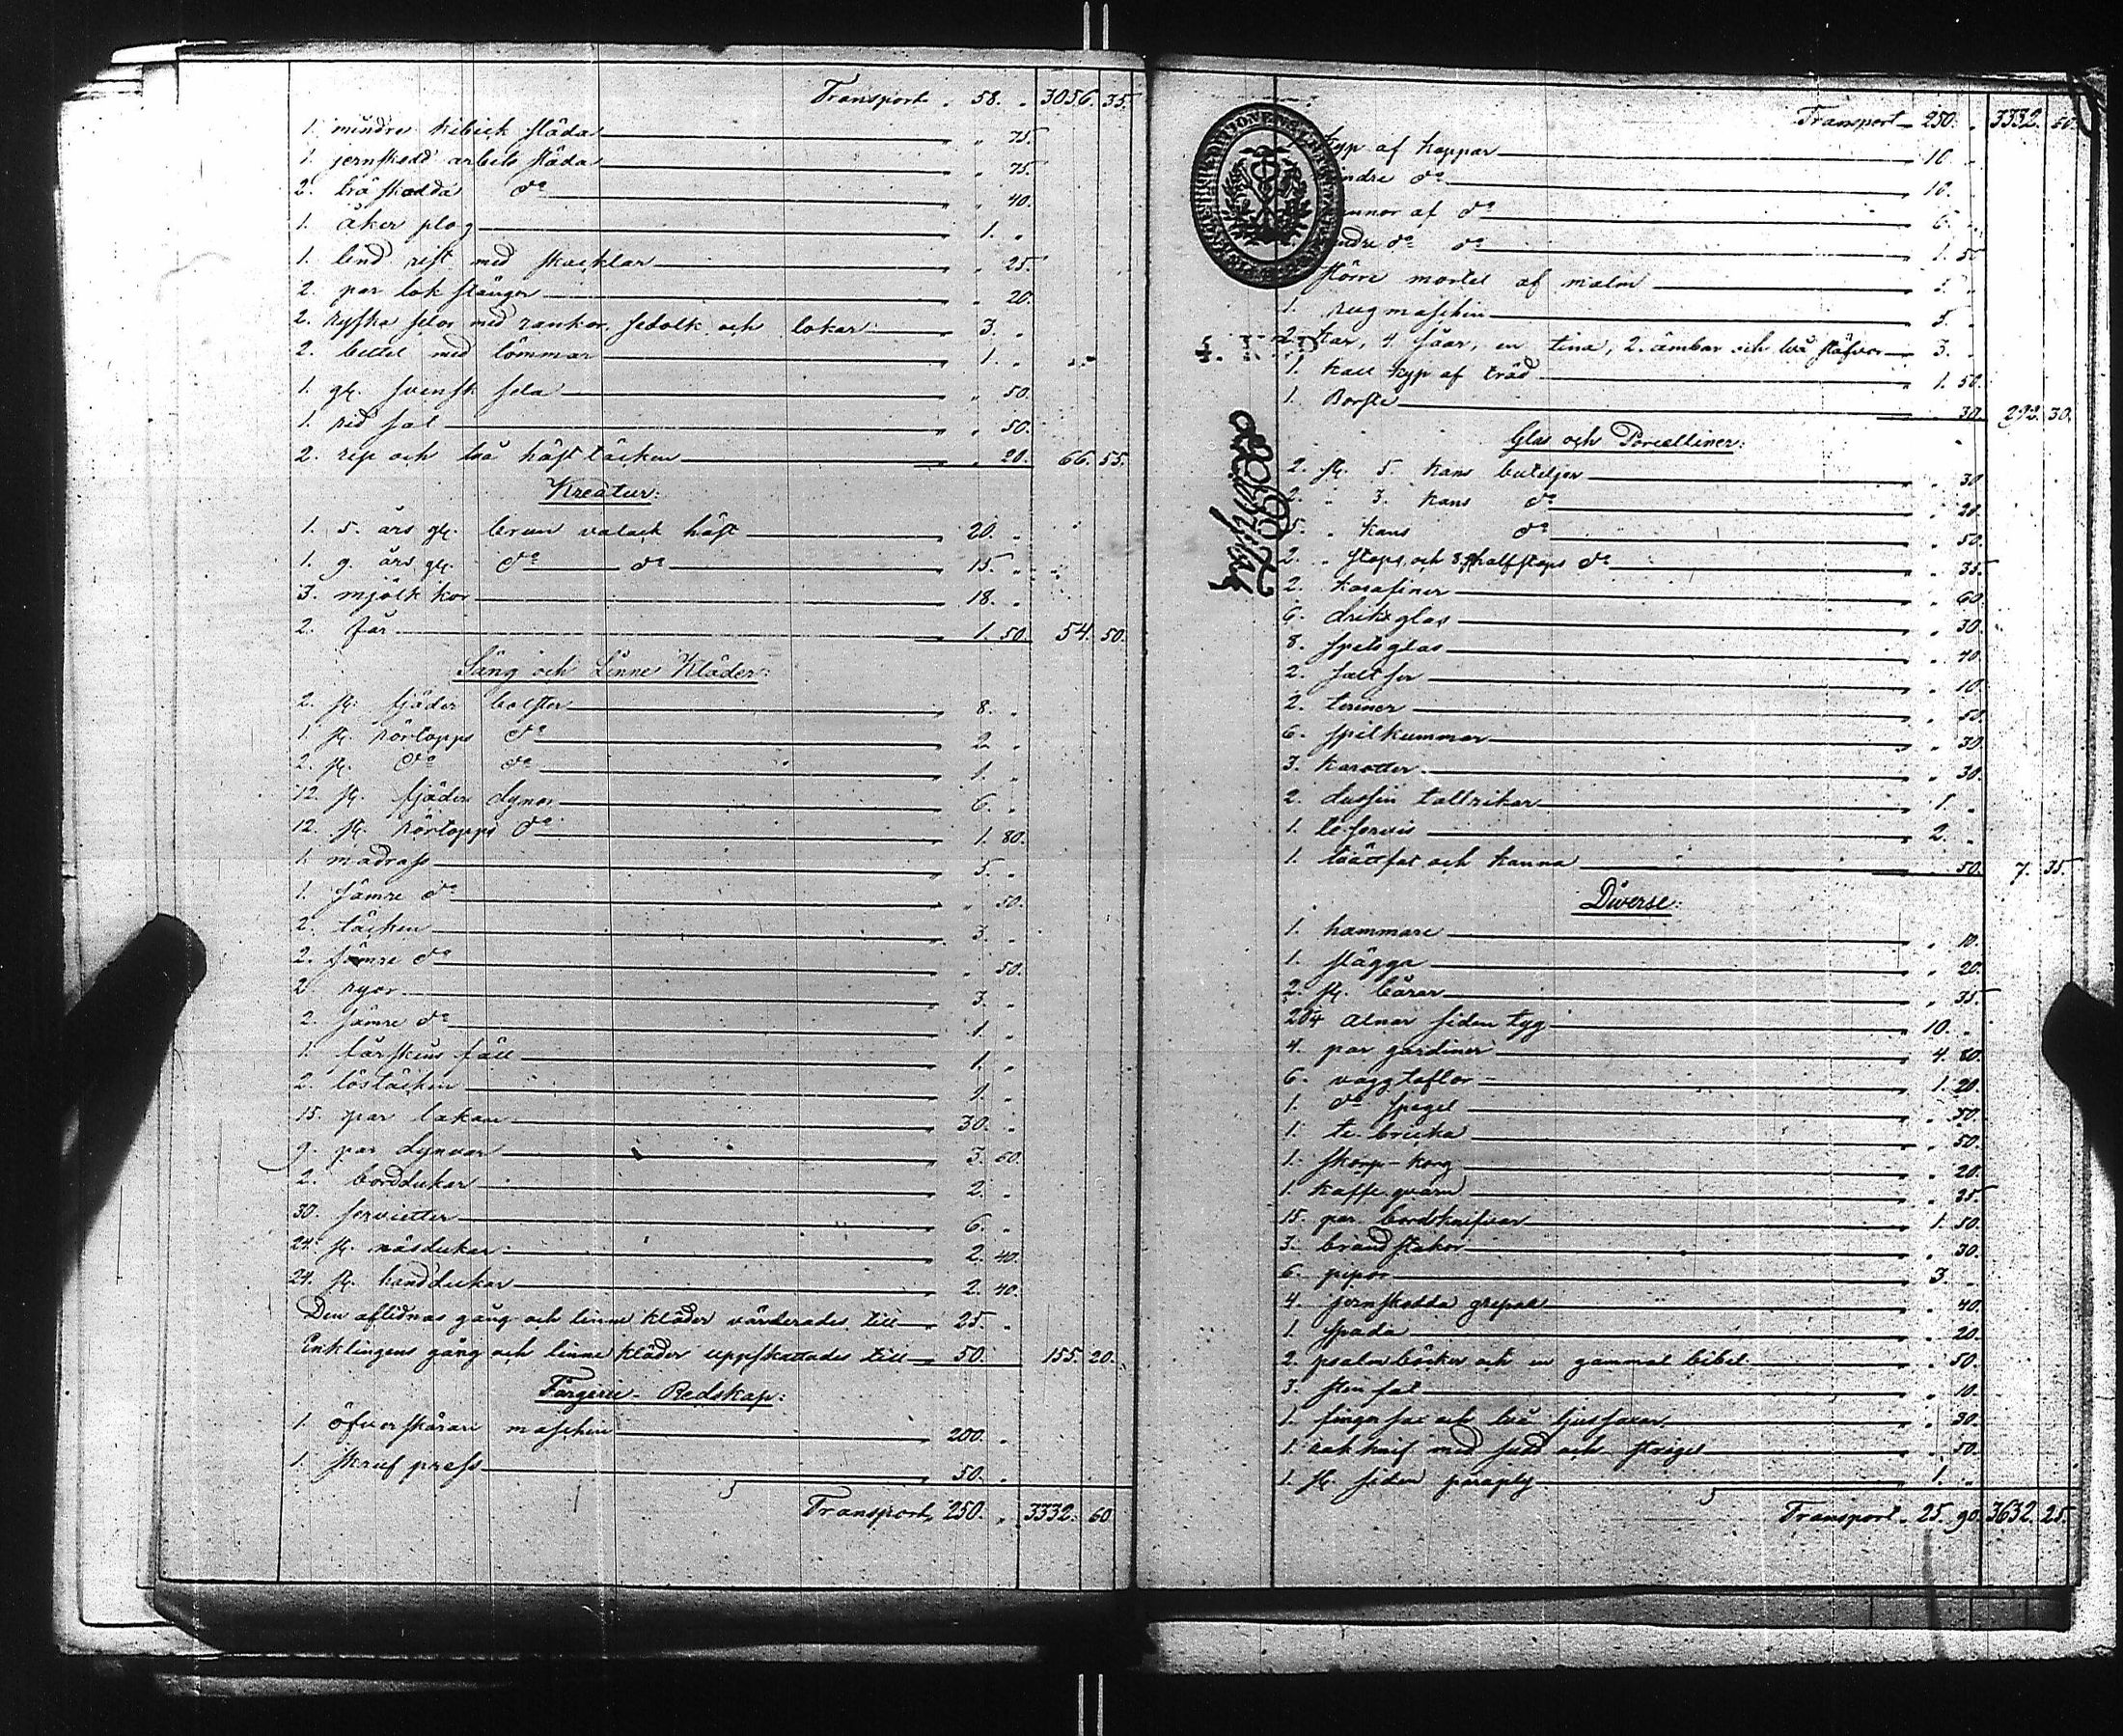 Transport „ 58. „ 3056. 35.
1. mindre kibick släda „ 75.
1. jernskodd arbets släda „ 75.
2. träskodda do „ 40.
1. åker plog 1. „
1. lind rist med skacklar „ 25.
2. par lok stänger „ 20.
2. ryska selor med rankor, sedolk och lokar 3. „
2. bettel med tömmar 1. „
1. gl. svensk sela „ 50.
1. rid sal „ 50.
2. rep och två häst täcken „ 20. 66. 55.
Kreatur:
1. 5. års gl. brun valack häst 20. „
1. 9. års gl. do do 15. „
3. mjölk kor 18. „
2. får 1. 50. 54. 50.
Säng och Linne Kläder:
2. st. fjäder bolster 8. „
1. st. rörtopps do 2. „
2. st. do do 1. „
12. st. fjäder dynor 6. „
12. st. rörtopps do 1. 80.
1. madrass 5. „
1. sämre do „ 50.
2. täcken 3. „
2. sämre do „ 50.
2. ryor 3. „
2. sämre do 1. „
1. fårskins fäll 1. „
2. löstäcken 1. „
15. par lakan 30. „
9. par dynvar 3. 60.
2. borddukar 2. „
30. servietter 6. „
24. st. näsdukar 2. 40.
24. st. handdukar 2. 40.
Den aflidnas gång och linne kläder värderades till 25. „
Enklingens gång och linne kläder uppskattades till 50. 155. 20.
Färgeri-Redskap:
1. öfverskärare maschin 200. „
1. skruf press 50. „
Transport, 250. „ 3332. 60.
Transport „ 250. „ 3332. 60.
kyp af koppar 10. „
ndre do 10. „
nnor af do 6. „
ndre do do 1. 50
större mortel af malm 1. „
1. rug maschin 5. „
2. kar, 4. såar, en tina, 2. ämbar och två stäfvor 3. „
1. kall kyp af träd 1. 50.
1. Borste 30. 292. 30.
Glas och Porcelliner:
2. st. 5. kans buteljer „ 30
2. „ 3. kans do „ 20.
5. „ kans do „ 50.
2. „ stops, och 3. st halfstops do „ 35.
2. karafiner „ 60.
6. driksglas „ 30.
8. spetsglas „ 40.
2. saltser „ 10.
2. teriner „ 50.
6. spilkummar „ 30.
3. karotter „ 30.
2. dussin tallrikar 1. „
1. te servis 2. „
1. tvättfat och kanna 50. 7. 35.
Diverse:
1. hammare „ 10.
1. slägga „ 20.
2. st. bårar „ 35
204 alnar siden tyg 10. „
4. par gardiner 4. 80.
6. väggtaflor 1. 20.
1. do spegel „ 50.
1. te bricka „ 50.
1. skorp-korg „ 20.
1. kaffe qvarn „ 35
15. par bordknifvar 1. 50.
3. brandstakor „ 30.
6. pipor 3. „
4. jernskodda grepar „ 40.
1. spada „ 20.
2. psalmböcker och en gammal bibel „ 50.
3. sten fat „ 10.
1. finger sax och två ljussaxar „ 30.
1. rak knif med fodd och strigel „ 50.
1. st. siden paraply 1. „
Transport „ 25. 90. 3632. 25.